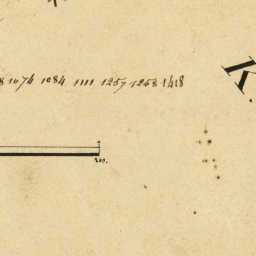 1074 1084 1111 1257 1258 1418
K.
200.